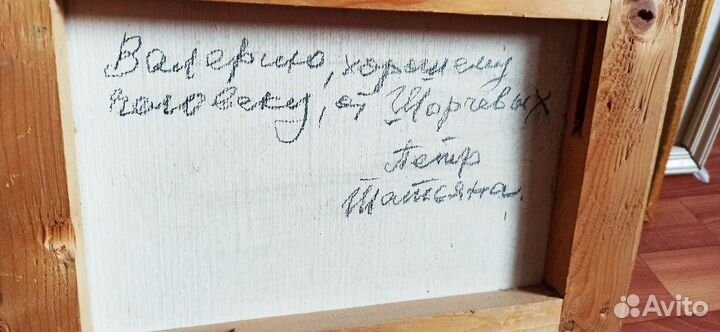 Валерию, хорошему
человеку, от Шорчевых
Петр
Татьяна.
Avito